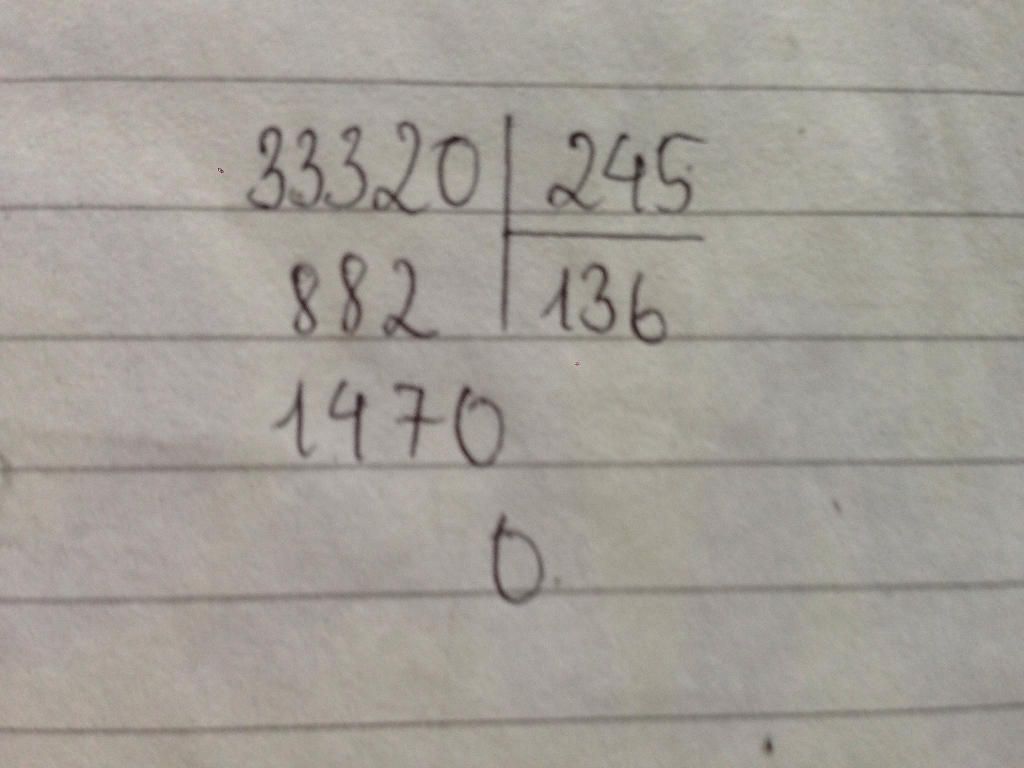 33320 | 245
882 | 136
1470
0